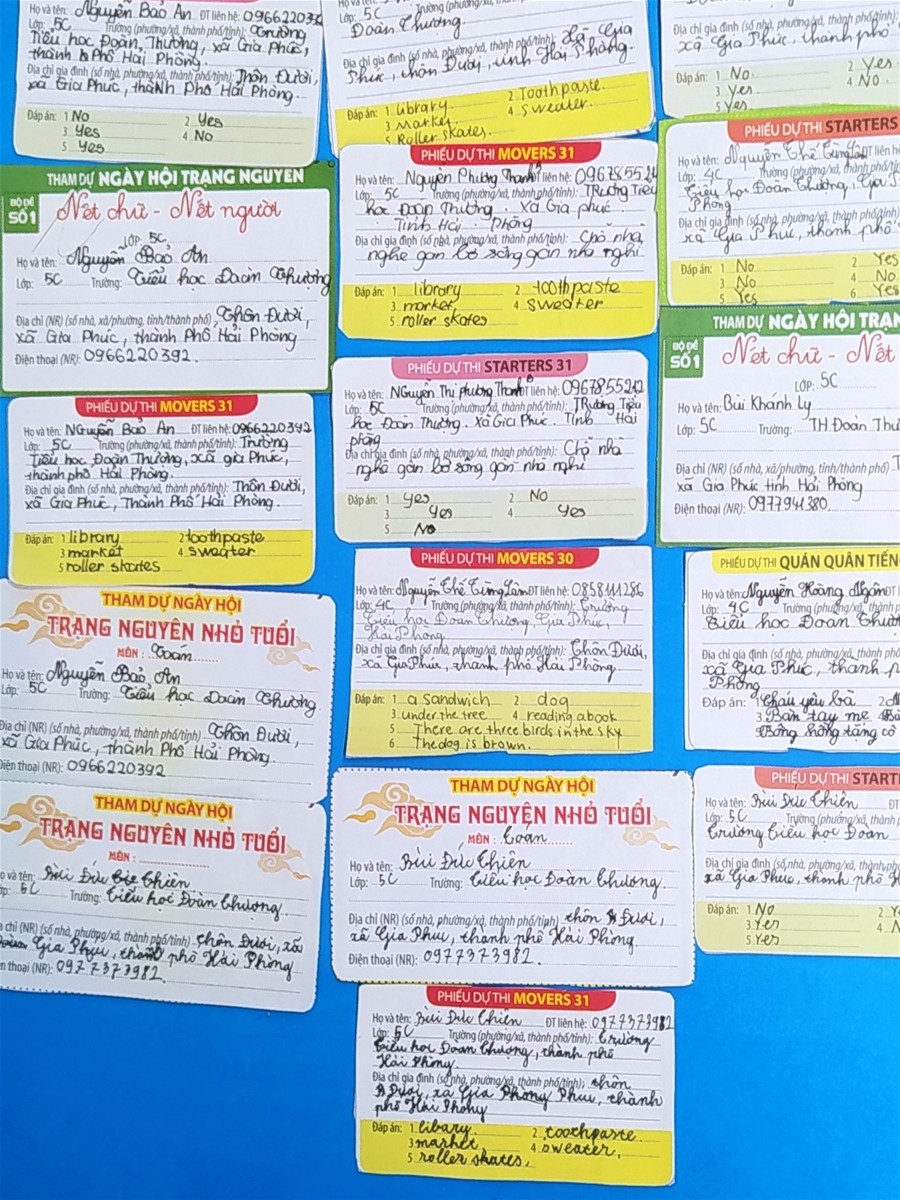 Họ và tên: Nguyễn Bảo An ĐT liên hệ: 0966220392
Lớp: 5C Trường (phường/xã, thành phố/tỉnh): Trường
Tiểu học Đoàn Thượng, xã Gia Phúc,
thành Phố Hải Phòng.
Địa chỉ gia đình (số nhà, phường/xã, thành phố/tỉnh): Thôn Đươi,
xã Gia Phúc, thành Phố Hải Phòng.
Đáp án: 1 No 2 Yes
3 Yes 4 No
5 Yes
THAM DỰ NGÀY HỘI TRẠNG NGUYÊN
BỘ ĐỀ SỐ 1
Nét chữ - Nết người
LỚP: 5C
Họ và tên: Nguyễn Bảo An
Lớp: 5C Trường: Tiểu học Đoàn Thượng
Địa chỉ (NR) (số nhà, xã/phường, tỉnh/thành phố) Thôn Đươi,
xã Gia Phúc, thành Phố Hải Phòng
Điện thoại (NR): 0966220392.
PHIẾU DỰ THI MOVERS 31
Họ và tên: Nguyễn Bảo An ĐT liên hệ: 0966220392
Lớp: 5C Trường (phường/xã, thành phố/tỉnh): Trường
Tiểu học Đoàn Thượng, xã gia Phúc,
thành phố Hải Phòng.
Địa chỉ gia đình (số nhà, phường/xã, thành phố/tỉnh): Thôn Đươi,
xã Gia Phúc, Thành Phố Hải Phòng.
Đáp án: 1 library 2 toothpaste
3 market 4 sweater
5 roller skates
THAM DỰ NGÀY HỘI
TRẠNG NGUYÊN NHỎ TUỔI
MÔN : Toán
Họ và tên: Nguyễn Bảo An
Lớp: 5C Trường: Tiểu học Đoàn Thượng
Địa chỉ (NR) (số nhà, phường/xã, thành phố/tỉnh) Thôn Đươi,
xã Gia Phúc, thành Phố Hải Phòng.
Điện thoại (NR): 0966220392
THAM DỰ NGÀY HỘI
TRẠNG NGUYÊN NHỎ TUỔI
MÔN :
Họ và tên: Bùi Đức Thiên
Lớp: 5C Trường: Tiểu học Đoàn Thượng.
Địa chỉ (NR) (số nhà, phường/xã, thành phố/tỉnh) thôn Đươi, xã
Gia Phúc, thành phố Hải Phòng
Điện thoại (NR): 0977373982.
Đoàn Thượng.
Địa chỉ gia đình (số nhà, phường/xã, thành phố/tỉnh): Xã Gia
Phúc, thôn Đươi, tỉnh Hải Phòng.
Đáp án: 1 library 2 Toothpaste.
3 market 4 sweater.
5 Roller skates.
PHIẾU DỰ THI MOVERS 31
Họ và tên: Nguyễn Phương Thanh ĐT liên hệ: 0967855212
Lớp: 5C Trường (phường/xã, thành phố/tỉnh): Trường Tiểu
học Đoàn Thượng. Xã Gia phúc.
Tỉnh Hải Phòng
Địa chỉ gia đình (số nhà, phường/xã, thành phố/tỉnh): Chỗ nhà
nghề gần bờ sông gần nhà nghỉ
Đáp án: 1 library 2 toothpaste
3 market, 4 sweater
5 roller skates
PHIẾU DỰ THI STARTERS 31
Họ và tên: Nguyễn Thị phương Thanh ĐT liên hệ: 0967855212
Lớp: 5C Trường (phường/xã, thành phố/tỉnh): Trường Tiểu
học Đoàn Thượng. Xã Gia Phúc. Tỉnh Hải
phòng
Địa chỉ gia đình (số nhà, phường/xã, thành phố/tỉnh): Chỗ nhà
nghề gần bờ sông gần nhà nghỉ
Đáp án: 1 Yes 2 No
3 Yes 4 Yes
5 No
PHIẾU DỰ THI MOVERS 30
Họ và tên: Nguyễn Thế Tùng Lâm ĐT liên hệ: 0858111286
Lớp: 4C, Trường (phường/xã, thành phố/tỉnh): Trường
Tiểu học Đoàn Thượng, Gia Phúc,
Hải Phòng
Địa chỉ gia đình (số nhà, phường/xã, thành phố/tỉnh): Thôn Đươi,
xã Gia Phúc, thành phố Hải Phòng.
Đáp án: 1 a sandwich 2 dog
3 under the tree 4 reading a book
5 There are three birds in the sky
6 The dog is brown.
THAM DỰ NGÀY HỘI
TRẠNG NGUYÊN NHỎ TUỔI
MÔN : Toán
Họ và tên: Bùi Đức Thiên
Lớp: 5C Trường: Tiểu học Đoàn Thượng.
Địa chỉ (NR) (số nhà, phường/xã, thành phố/tỉnh) thôn Đươi,
xã Gia Phúc, thành phố Hải Phòng.
Điện thoại (NR): 0977373982.
PHIẾU DỰ THI MOVERS 31
Họ và tên: Bùi Đức Thiên ĐT liên hệ: 0977373982
Lớp: 5C Trường (phường/xã, thành phố/tỉnh): Trường
Tiểu học Đoàn Thượng, thành phố
Hải Phòng.
Địa chỉ gia đình (số nhà, phường/xã, thành phố/tỉnh): thôn
Đươi, xã Gia Phòng Phúc, thành
phố Hải Phòng
Đáp án: 1 libary 2 toothpaste
3 market 4 sweater,
5 roller skates,
Địa chỉ gia đình (số nhà, phường/xã, thành
xã Gia Phúc, thành phố
Đáp án: 1 No 2 Yes
3 Yes 4 No.
5 Yes
PHIẾU DỰ THI STARTERS
Họ và tên: Nguyễn Thế Tùng Lâm ĐT liên hệ:
Lớp: 4C Trường (phường/xã, thành phố
Tiểu học Đoàn Thượng, Gia
Phòng
Địa chỉ gia đình (số nhà, phường/xã, thành phố/tỉnh)
xã Gia Phúc, thành phố
Đáp án: 1 No 2 Yes
3 No 4 No
5 Yes 6 Yes
THAM DỰ NGÀY HỘI TRẠN
BỘ ĐỀ SỐ 1
Nét chữ - Nết
LỚP: 5C
Họ và tên: Bùi Khánh Ly
Lớp: 5C Trường: TH Đoàn Thư
Địa chỉ (NR) (số nhà, xã/phường, tỉnh/thành phố)
xã Gia Phúc tỉnh Hải Phòng
Điện thoại (NR): 0977941380.
PHIẾU DỰ THI QUÁN QUÂN TIẾNG
Họ và tên: Nguyễn Hoàng Ngân ĐT
Lớp: 4C Trường (phường/xã, thành phố
Tiểu học Đoàn Thượ
Địa chỉ gia đình (số nhà, phường/xã, thành phố/tỉnh)
xã Gia Phúc, thành p
Phòng
Đáp án: 1 Cháu yêu bà 2
3 Bàn tay mẹ 4
5 Bông hồng tặng cô
PHIẾU DỰ THI START
Họ và tên: Bùi Đức Thiên ĐT
Lớp: 5C Trường (phường/xã, thành phố
Trường Tiểu học Đoàn
Địa chỉ gia đình (số nhà, phường/xã, thành phố
xã Gia Phúc, thành phố H
Đáp án: 1 No 2 Y
3 Yes 4 N
5 Yes